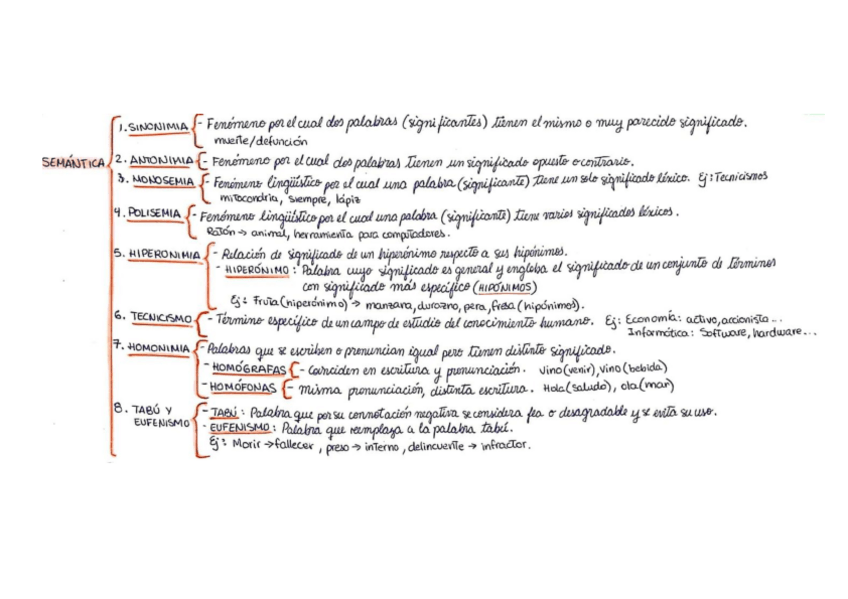 SEMÁNTICA
1. SINONIMIA - Fenómeno por el cual dos palabras (significantes) tienen el mismo o muy parecido significado.
muerte/defunción
2. ANTONIMIA - Fenómeno por el cual dos palabras tienen un significado opuesto o contrario.
3. MONOSEMIA - Fenómeno lingüístico por el cual una palabra (significante) tiene un solo significado léxico. Ej: Tecnicismos
mitocondria, siempre, lápiz
4. POLISEMIA - Fenómeno lingüístico por el cual una palabra (significante) tiene varios significados léxicos.
Ratón → animal, herramienta para computadores.
5. HIPERONIMIA - Relación de significado de un hiperónimo respecto a sus hipónimos.
- HIPERÓNIMO: Palabra cuyo significado es general y engloba el significado de un conjunto de términos
con significado más específico (HIPÓNIMOS)
Ej: Fruta (hiperónimo) → manzana, durazno, pera, fresa (hipónimos).
6. TECNICISMO - Término específico de un campo de estudio del conocimiento humano. Ej: Economía: activo, accionista...
Informática: Software, hardware...
7. HOMONIMIA - Palabras que se escriben o pronuncian igual pero tienen distinto significado.
- HOMÓGRAFAS - Coinciden en escritura y pronunciación. Vino (venir), vino (bebida)
- HOMÓFONAS - misma pronunciación, distinta escritura. Hola (saludo), ola (mar)
8. TABÚ Y - TABÚ: Palabra que por su connotación negativa se considera fea o desagradable y se evita su uso.
EUFENISMO - EUFENISMO: Palabra que reemplaza a la palabra tabú.
Ej: Morir → fallecer, preso → interno, delincuente → infractor.